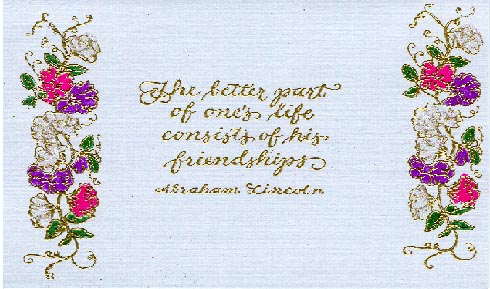 The better part
of one's life
consists of his
friendships
Abraham Lincoln